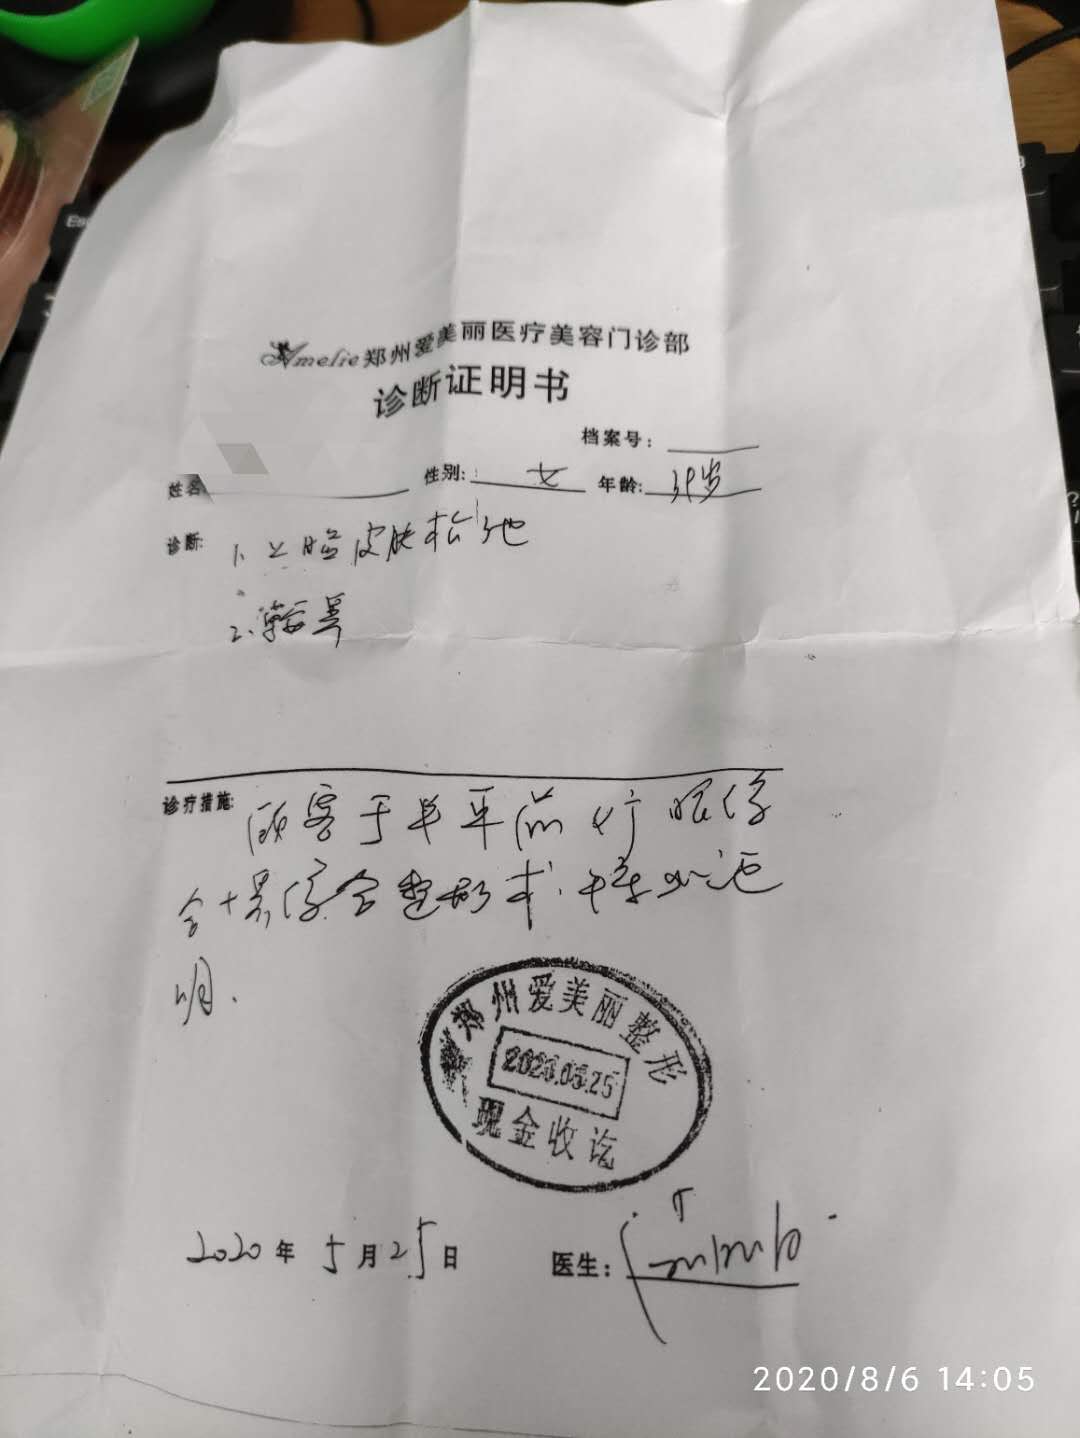 Amelie郑州爱美丽医疗美容门诊部
诊断证明书
档案号:
姓名 性别: 女 年龄: 39岁
诊断: 1、上睑皮肤松弛
2、鞍鼻
诊疗措施: 顾客于半年前行眼综
合+鼻综合整形术.
明.
郑州爱美丽整形
2020.05.25
现金收讫
2020年5月25日 医生:
2020/8/6 14:05
Esc